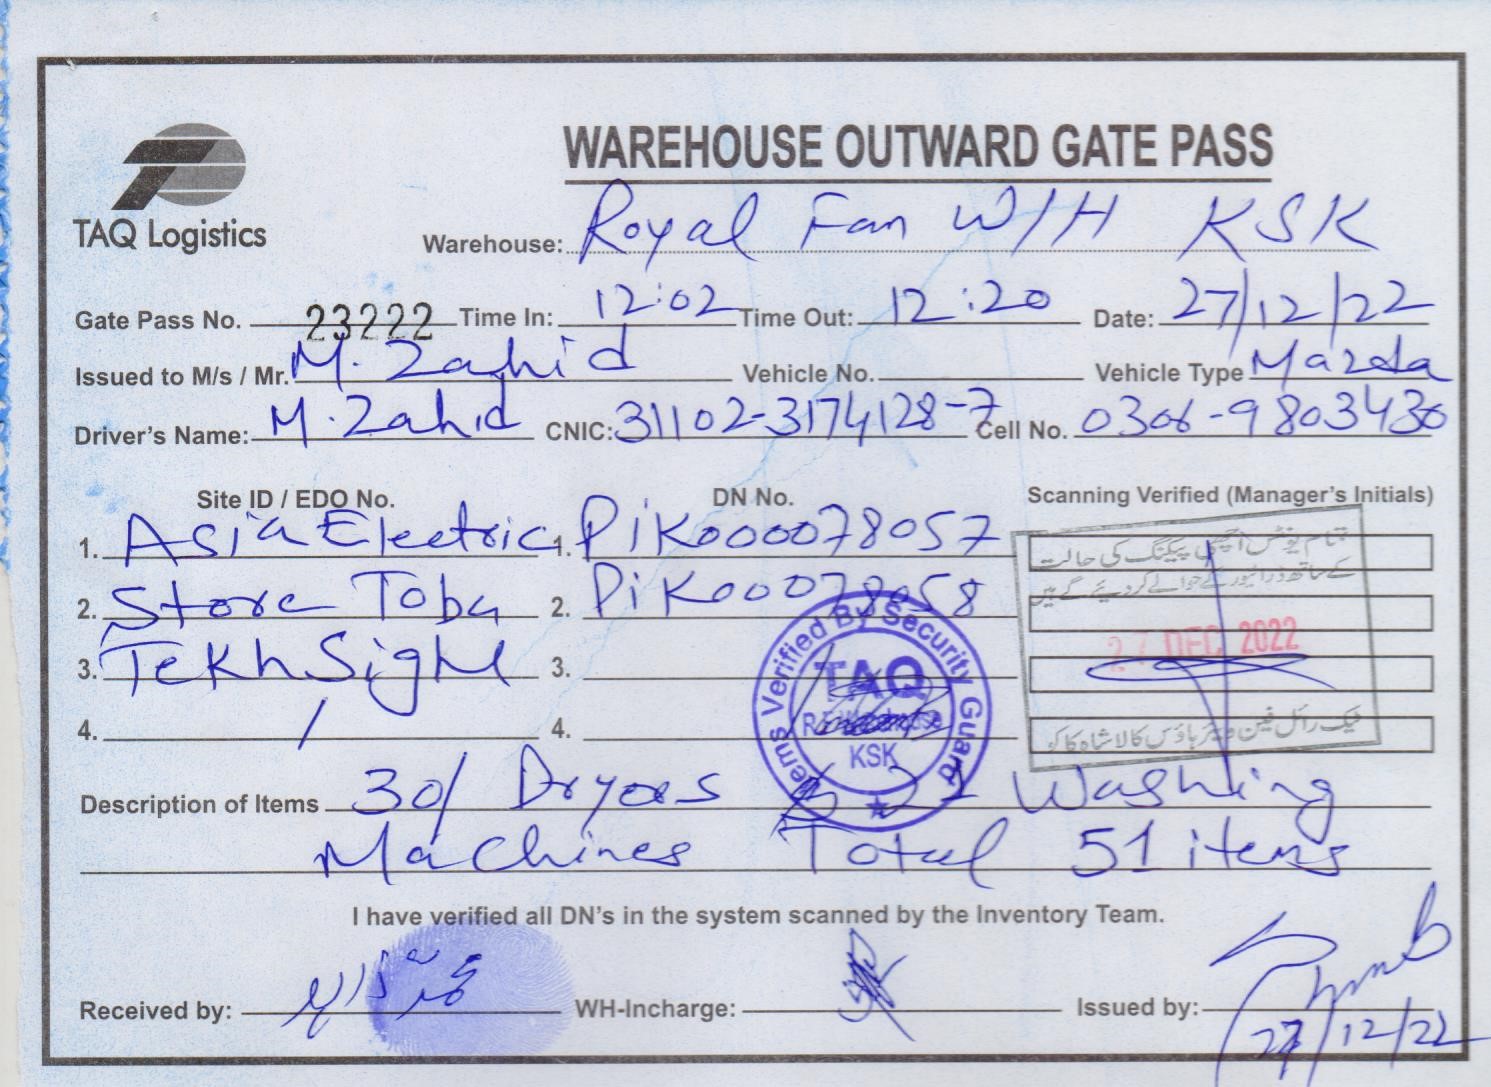 TAQ Logistics
WAREHOUSE OUTWARD GATE PASS
Warehouse: Royal Fan W/H KSK
Gate Pass No. 23222 Time In: 12:02 Time Out: 12:20 Date: 27/12/22
Issued to M/s / Mr. M. Zahid Vehicle No. Vehicle Type Mazda
Driver's Name: M. Zahid CNIC: 31102-3174128-7 Cell No. 0306-9803430
Site ID / EDO No. DN No. Scanning Verified (Manager's Initials)
1. Asia Electric 1. PiK000078057
2. Store Toba 2. PiK00078058
3. Tekh Sigh 3.
4. / 4.
تمام یونٹس اچھی پیکنگ کی حالت
کے ساتھ ڈرائیور کے حوالے کر دیئے گئے ہیں
27 DEC 2022
رائل فین ویئر ہاؤس کالا شاہ کاکو
Items Verified By Security Guard
TAQ
KSK
Description of Items 30/ Dryers & 21 Washing
Machines Total 51 items
I have verified all DN's in the system scanned by the Inventory Team.
Received by: محمد زاہد WH-Incharge: Issued by:
27/12/22